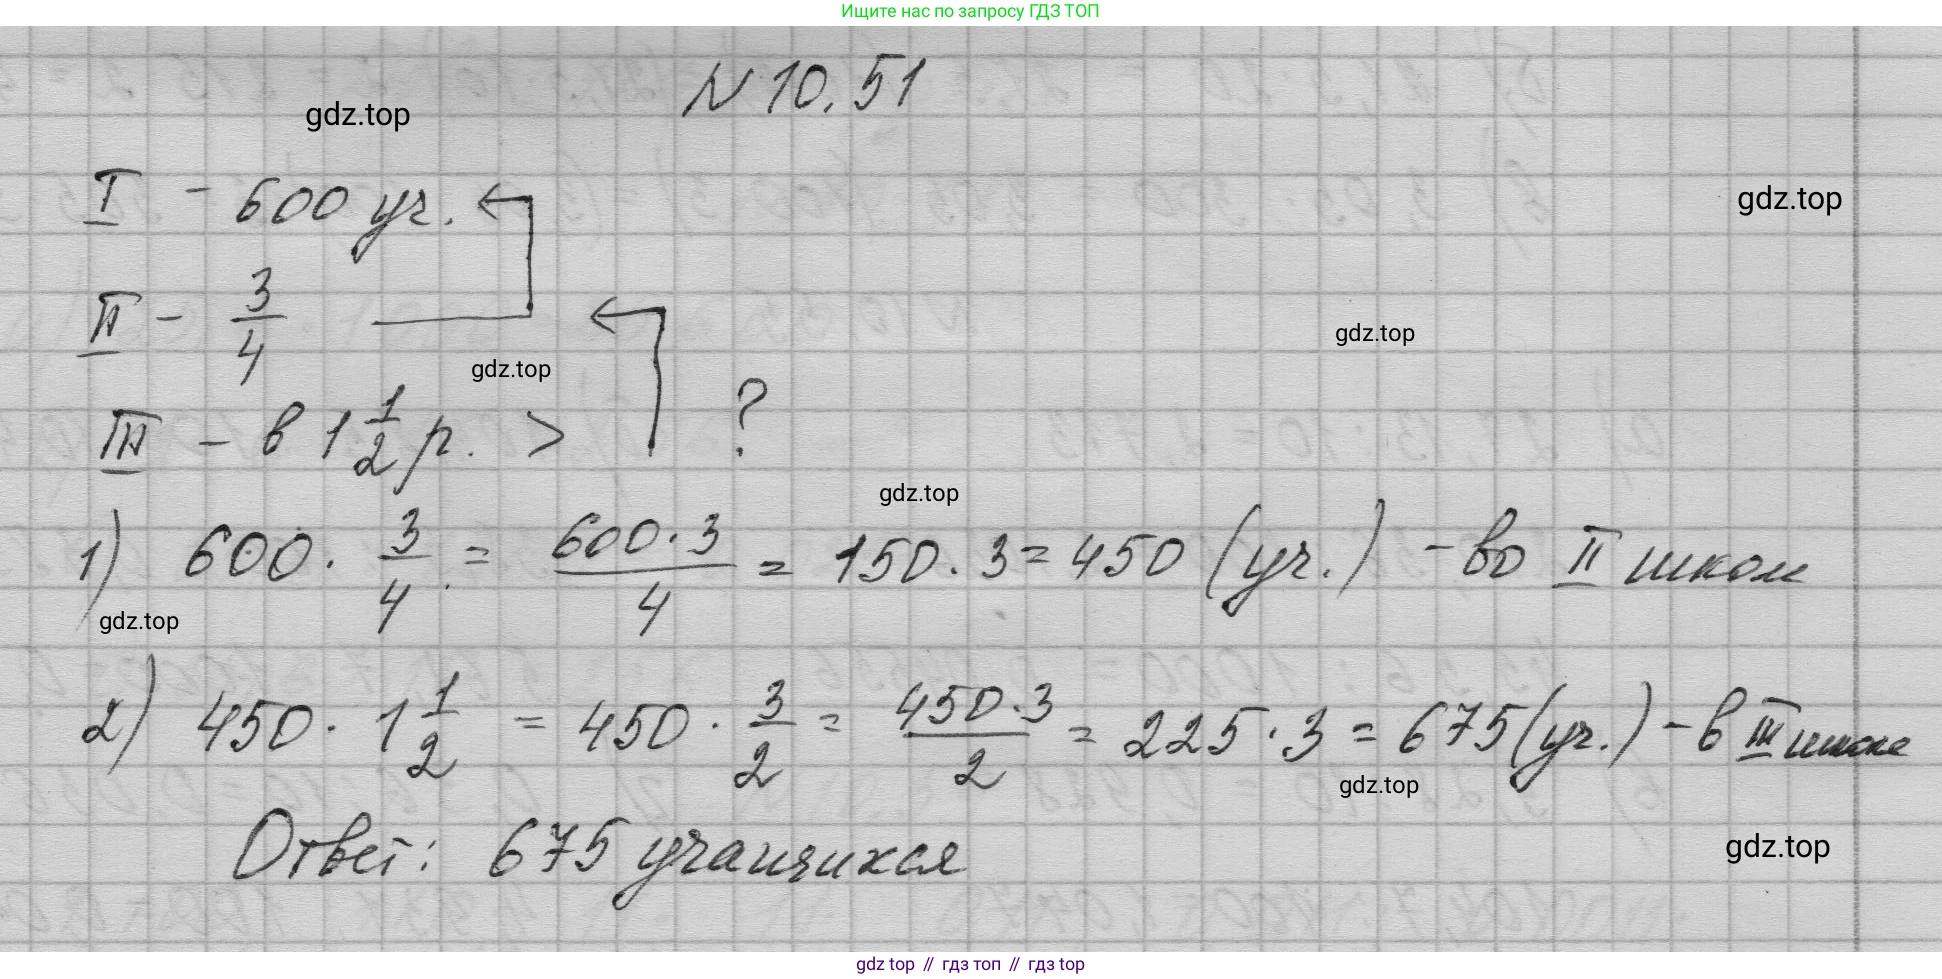 Ищите нас по запросу ГДЗ ТОП
N 10.51
gdz.top
I - 600 уч.
gdz.top
II - 3/4
gdz.top
gdz.top
III - в 1 1/2 р. > ?
gdz.top
1) 600 · 3/4 = 600·3/4 = 150 · 3 = 450 (уч.) - во II школе
gdz.top
2) 450 · 1 1/2 = 450 · 3/2 = 450·3/2 = 225 · 3 = 675 (уч.) - в III школе
gdz.top
Ответ: 675 учащихся
gdz.top
gdz top // гдз топ // гдз top